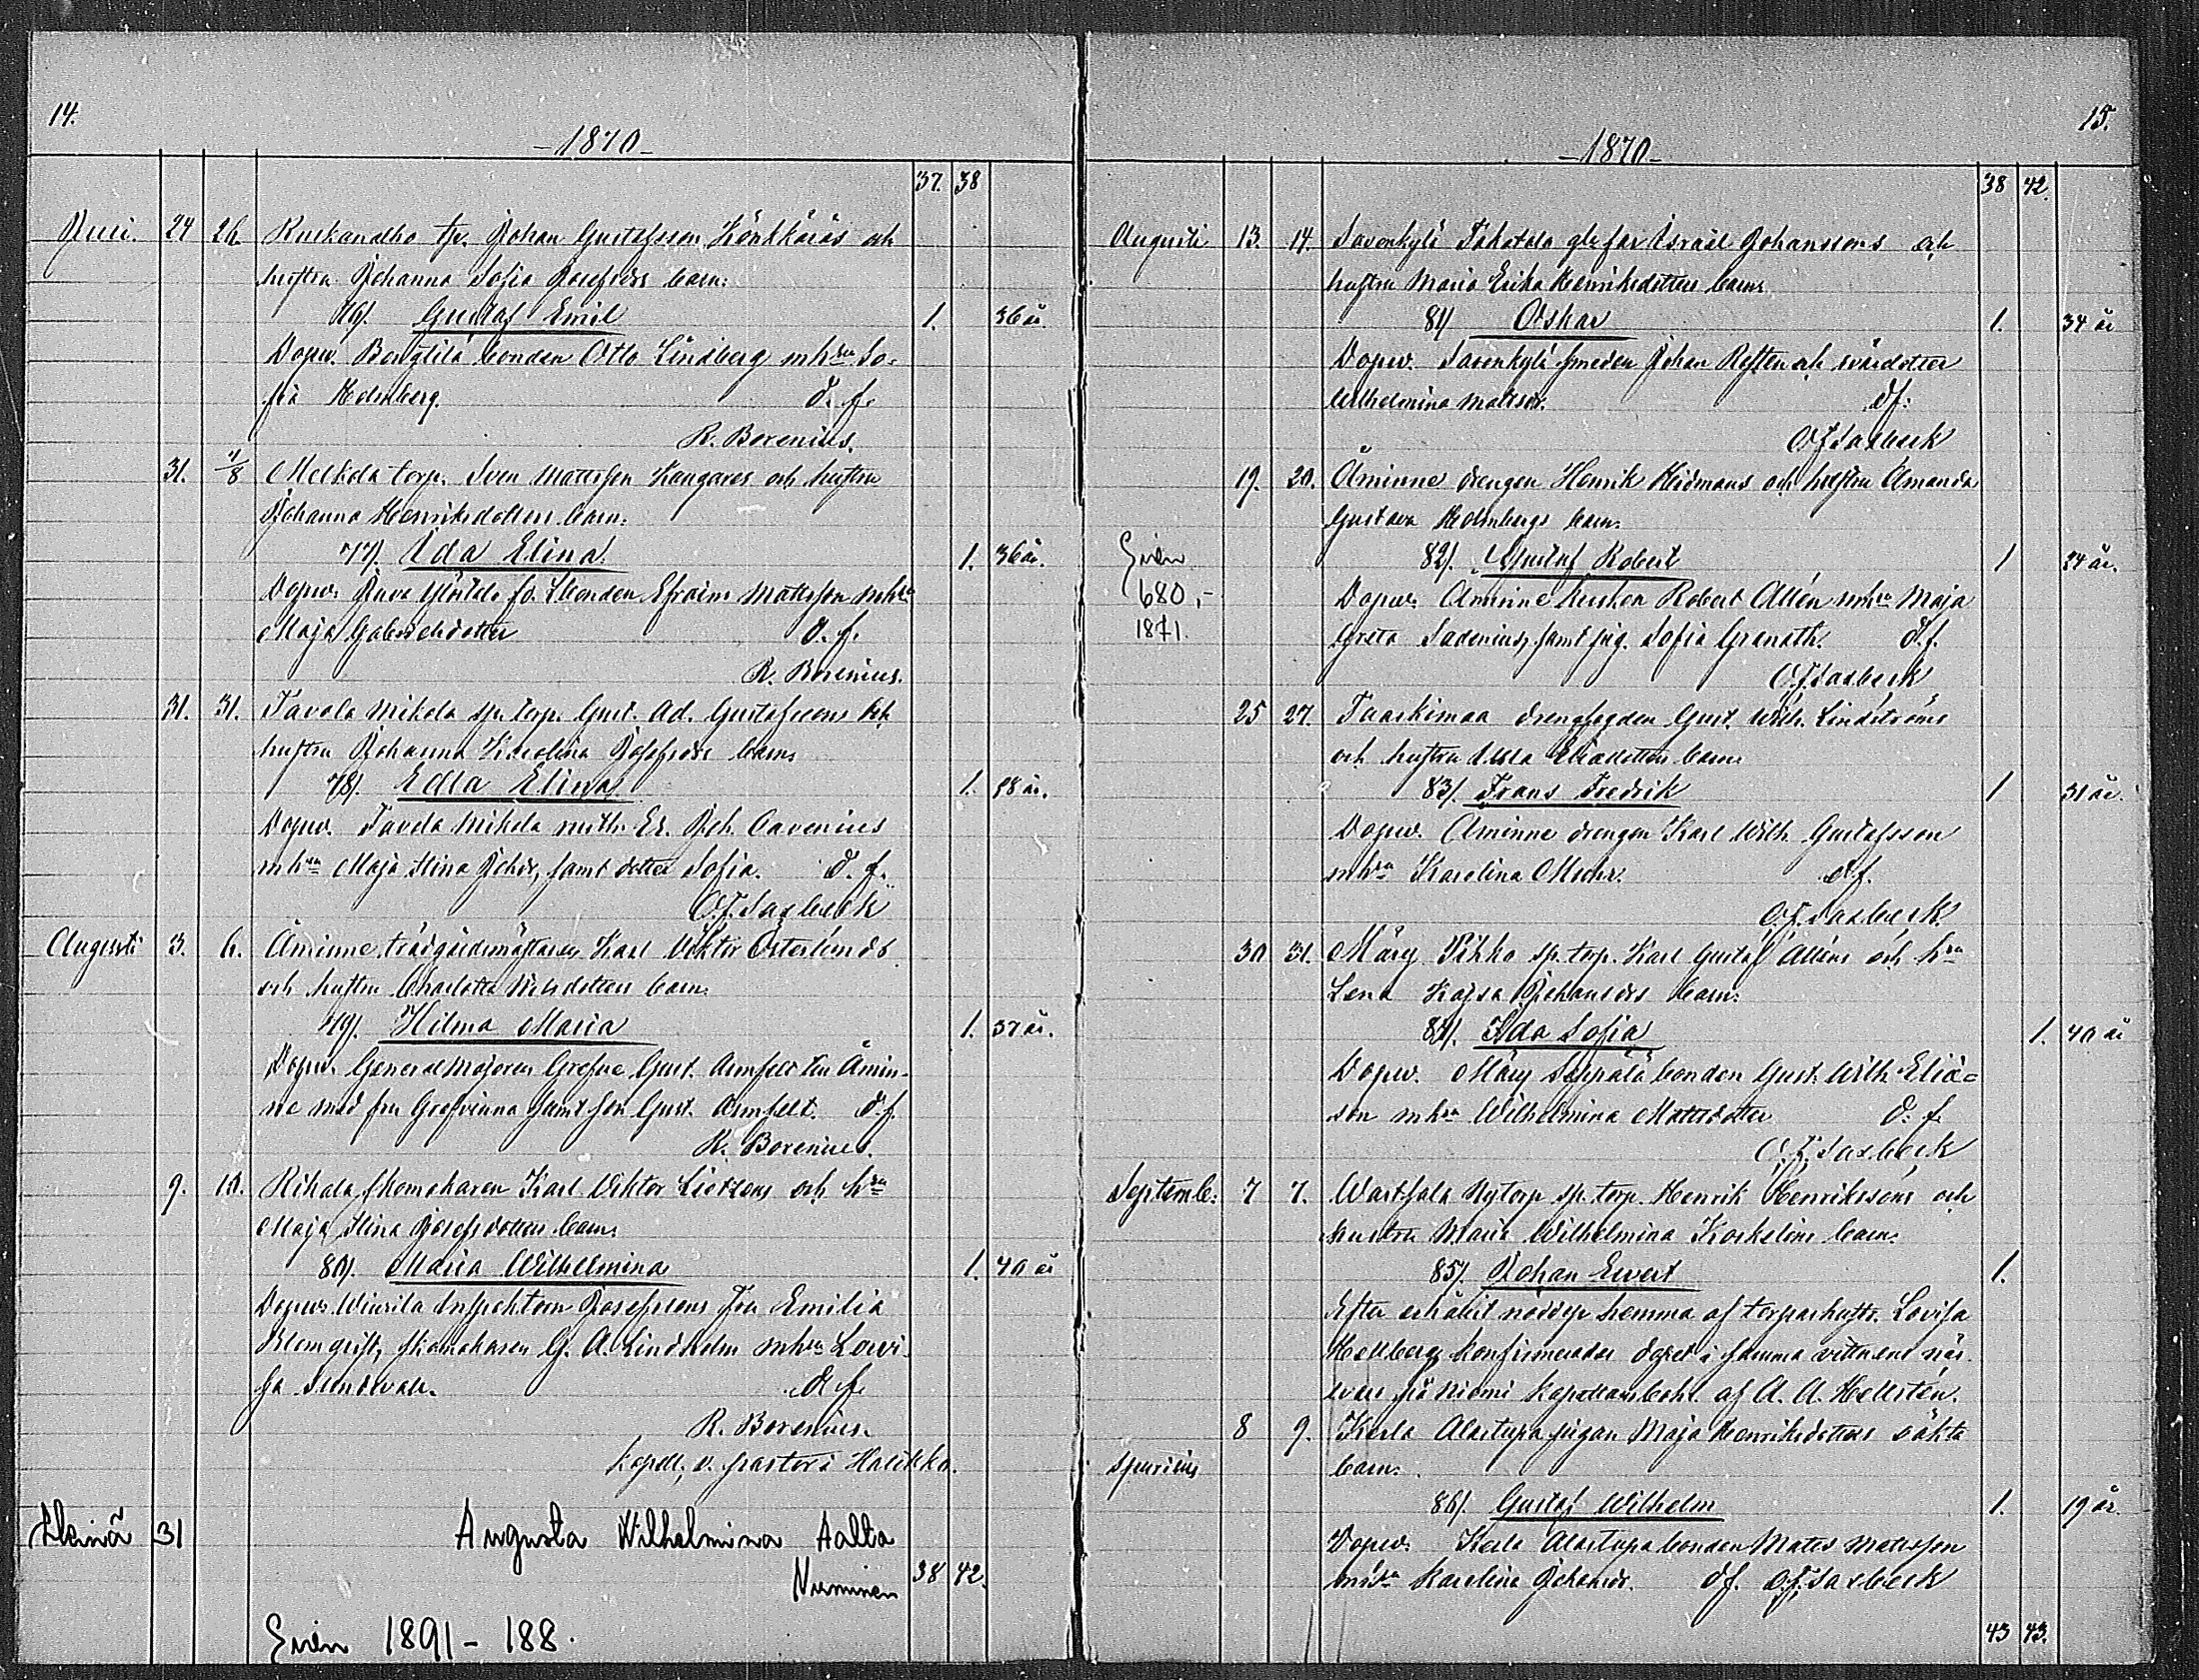 14.
-1870-
37. 38
Juli. 24 26. Ruskanalho tp. Johan Gustafsson Könkkäräs och
hustru Johanna Sofia Josefsdrs barn:
76). Gustaf Emil 1. 36 år.
Dopw. bonden Otto Lindberg mhru So-
fia Holmberg. d. f.
R. Borenius.
31. 1/8 Melkola torp. Sven Mattsson Kangares och hustru
Johanna Henriksdotters barn:
77). Ida Elina. 1. 36 år.
Dopw. fd. bonden Efraim Mattsson mhru
Maja Gabrielsdotter d. f.
R. Borenius.
31. 31. Tavola Mikola sp. torp. Gust. Ad. Gustafssons och
hustru Johanna Karolina Josefsdrs barn
78). Edla Elina 1. 28 år.
Dopw. Tavola Mikola Joh. Oavenius
mhru Maja Stina Johdr, samt dotter Sofia. d. f.
O. F. Saxbeck
Augusti 3. 6. Åminne trädgårdsmästaren Karl Viktor Österlunds
och hustru Charlotta Nilsdotters barn:
79). Hilma Maria 1. 37 år.
Dopw. Generalmajoren Grefve Gust. Armfelt till Åmin-
ne med fru Grefvinna samt son Gust. Armfelt. d. f.
R. Borenius.
9. 10. Rihala skomakaren Karl Viktor och hru
Maja Stina Josefsdotters barn:
80). Maria Wilhelmina 1. 40 år
Dopw. Wiurila Inspektorn Josefssons fru Emilia
Blomqvist, skomakaren G. A. Lindholm mhru Lovi-
sa Sundvall. d. f.
R. Borenius.
kapell. v. pastor i Halikko.
Heinä 31 Augusta Wilhelmina Aalto
Nurminen 38 42.
Eurén 1891 - 188.
15.
-1870-
38 42.
Augusti 13. 14. Savenkylä Tahotola Israel Johanssons och
hustru Maria Erika Henriksdotters barn
81) Oskar 1. 34 år
Dopw. Savenkylä smeden Johan och svärdotter
Wilhelmina Mattsdr. d f.
O F Saxbeck
19. 20. Åminne drengen Henrik Hidmans och hustru Amanda
Gustava Holmbergs barn:
Eurén 82). Gustaf Robert 1 24 år.
680,- Dopw. Åminne kusken Robert Allén mhru Maja
1871. Greta Sadenius, samt pig. Sofia Granath. d. f.
O. F. Saxbeck
25 27. Tuarkimaa drengfogden Gust. Wilh. Lindströms
och hustru Ulla Eliædotters barn:
83). Frans Fredrik 1 31 år.
Dopw. Åminne drengen Karl Wilh. Gustafsson
mhru Karolina Muhr. d. f.
O. F. Saxbeck
30 31. Märy Pihko sp. torp. Karl Gustaf Alléns och hru
Lena Kajsa Johansdrs barn:
84). Ida Sofia 1. 40 år
Dopw. Märy Seppälä bonden Gust. Wilh. Eliæ-
son mhru Wilhelmina Mattsdotter d. f.
O. F. Saxbeck
Septemb: 7 7. Wartsala Nytorp sp. torp. Henrik Henrikssons och
hustru Maria Wilhelmina Koskelins barn:
85). Johan Evert 1.
Efter erhållit nöddop hemma af torparhustr. Lovisa
Hellberg konfirmerades dopet i samma vittnens när-
varo på Niemi kapellansbohl. af A. A. Hellstén.
8 9. Kerla Alastupa pigan Maja Henriksdotters oäkta
spurius barn:
86). Gustaf Wilhelm 1. 19 år.
Dopw. Kerla Alastupa bonden Matts Mattsson
mhru Karolina Johansdr. d f. O. F. Saxbeck
43 43.